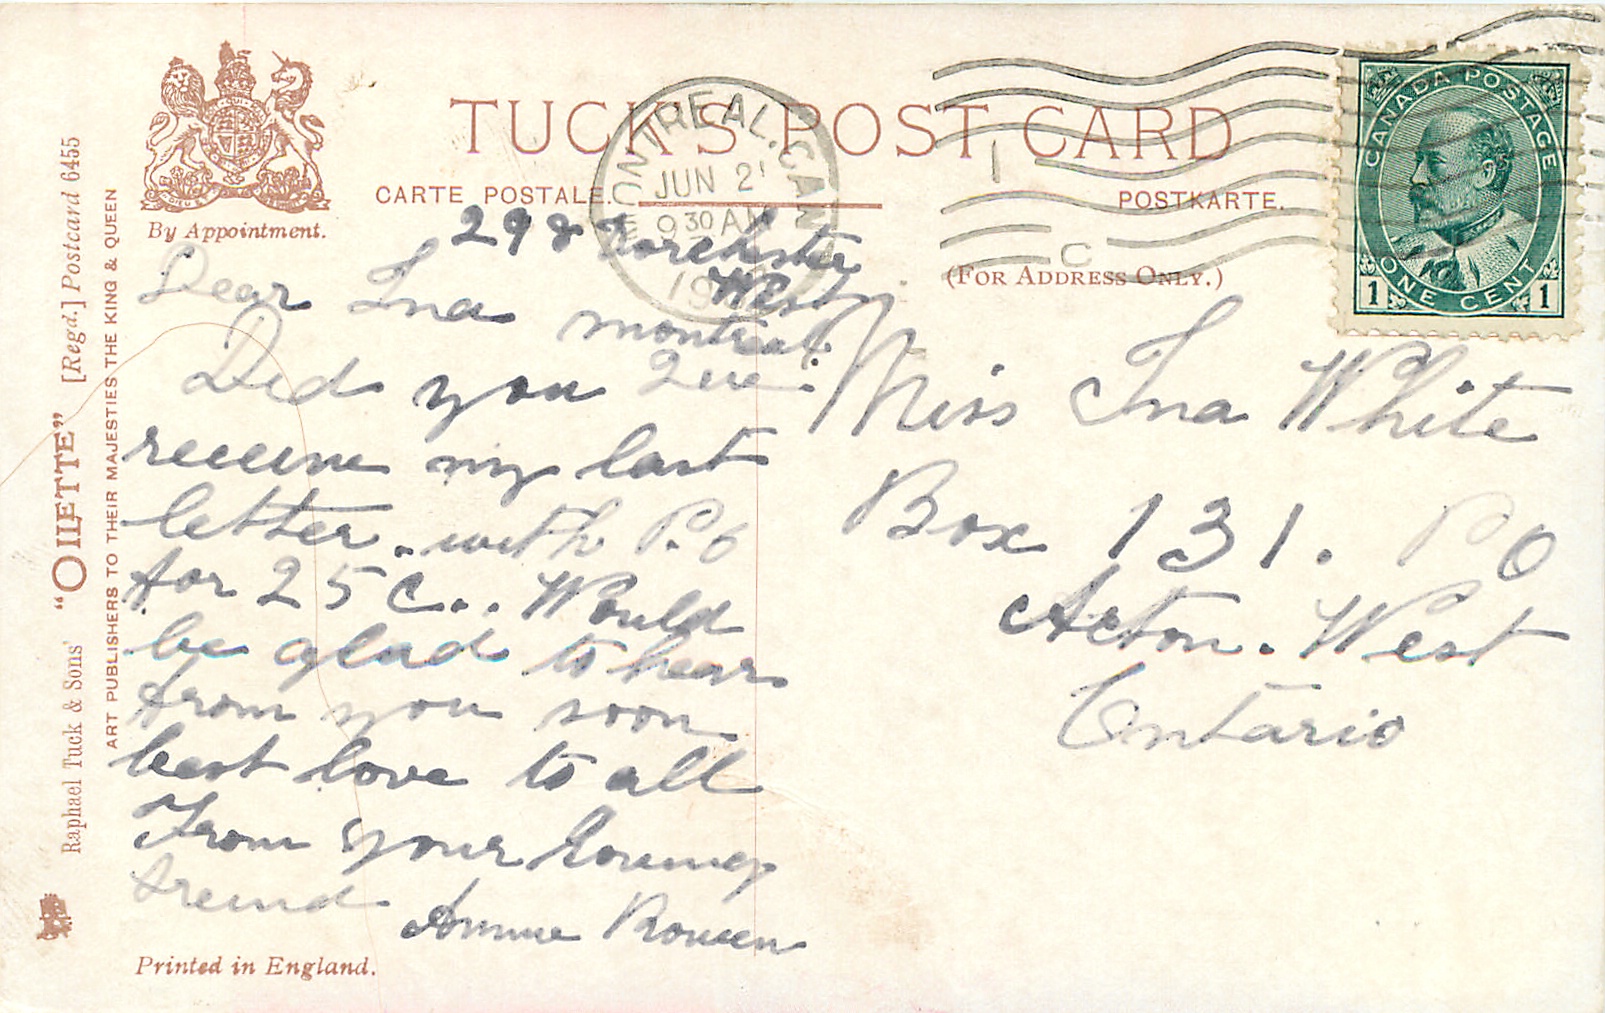 TUCK'S POST CARD
CARTE POSTALE.
POSTKARTE.
(FOR ADDRESS ONLY.)
By Appointment.
MONTREAL. CAN
JUN 21
930 AM
19
1
C
CANADA POSTAGE
ONE CENT
1 1
298 Dorchester
West
montreal
Que.
Dear Ina
Did you
receive my last
letter. with P.O
for 25 C.. Would
be glad to hear
from you soon
best love to all
From your loving
freind
Annie
Miss Ina White
Box 131. PO
Acton. West
Ontario
Raphael Tuck & Sons' "OILETTE" [Regd.] Postcard 6455
ART PUBLISHERS TO THEIR MAJESTIES THE KING & QUEEN
Printed in England.